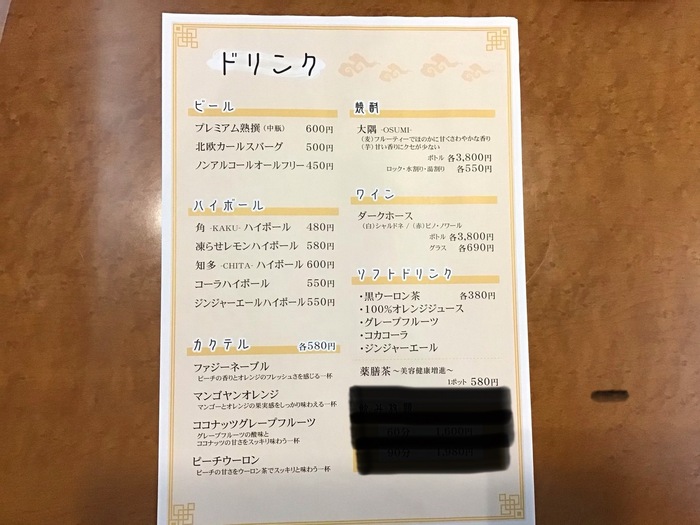 ドリンク
ビール
プレミアム熟撰（中瓶） 600円
北欧カールスバーグ 500円
ノンアルコールオールフリー 450円
ハイボール
角 -KAKU- ハイボール 480円
凍らせレモンハイボール 580円
知多 -CHITA- ハイボール 600円
コーラハイボール 550円
ジンジャーエールハイボール 550円
カクテル 各580円
ファジーネーブル
ピーチの香りとオレンジのフレッシュさを感じる一杯
マンゴヤンオレンジ
マンゴーとオレンジの果実感をしっかり味わえる一杯
ココナッツグレープフルーツ
グレープフルーツの酸味と
ココナッツの甘さをスッキリ味わう一杯
ピーチウーロン
ピーチの甘さをウーロン茶でスッキリと味わう一杯
焼酎
大隅 -OSUMI-
（麦）フルーティーでほのかに甘くさわやかな香り
（芋）甘い香りにクセが少ない
ボトル 各3,800円
ロック・水割り・湯割り 各550円
ワイン
ダークホース
（白）シャルドネ /（赤）ピノ・ノワール
ボトル 各3,800円
グラス 各690円
ソフトドリンク
・黒ウーロン茶 各380円
・100%オレンジジュース
・グレープフルーツ
・コカコーラ
・ジンジャーエール
薬膳茶 ～美容健康増進～
1ポット 580円